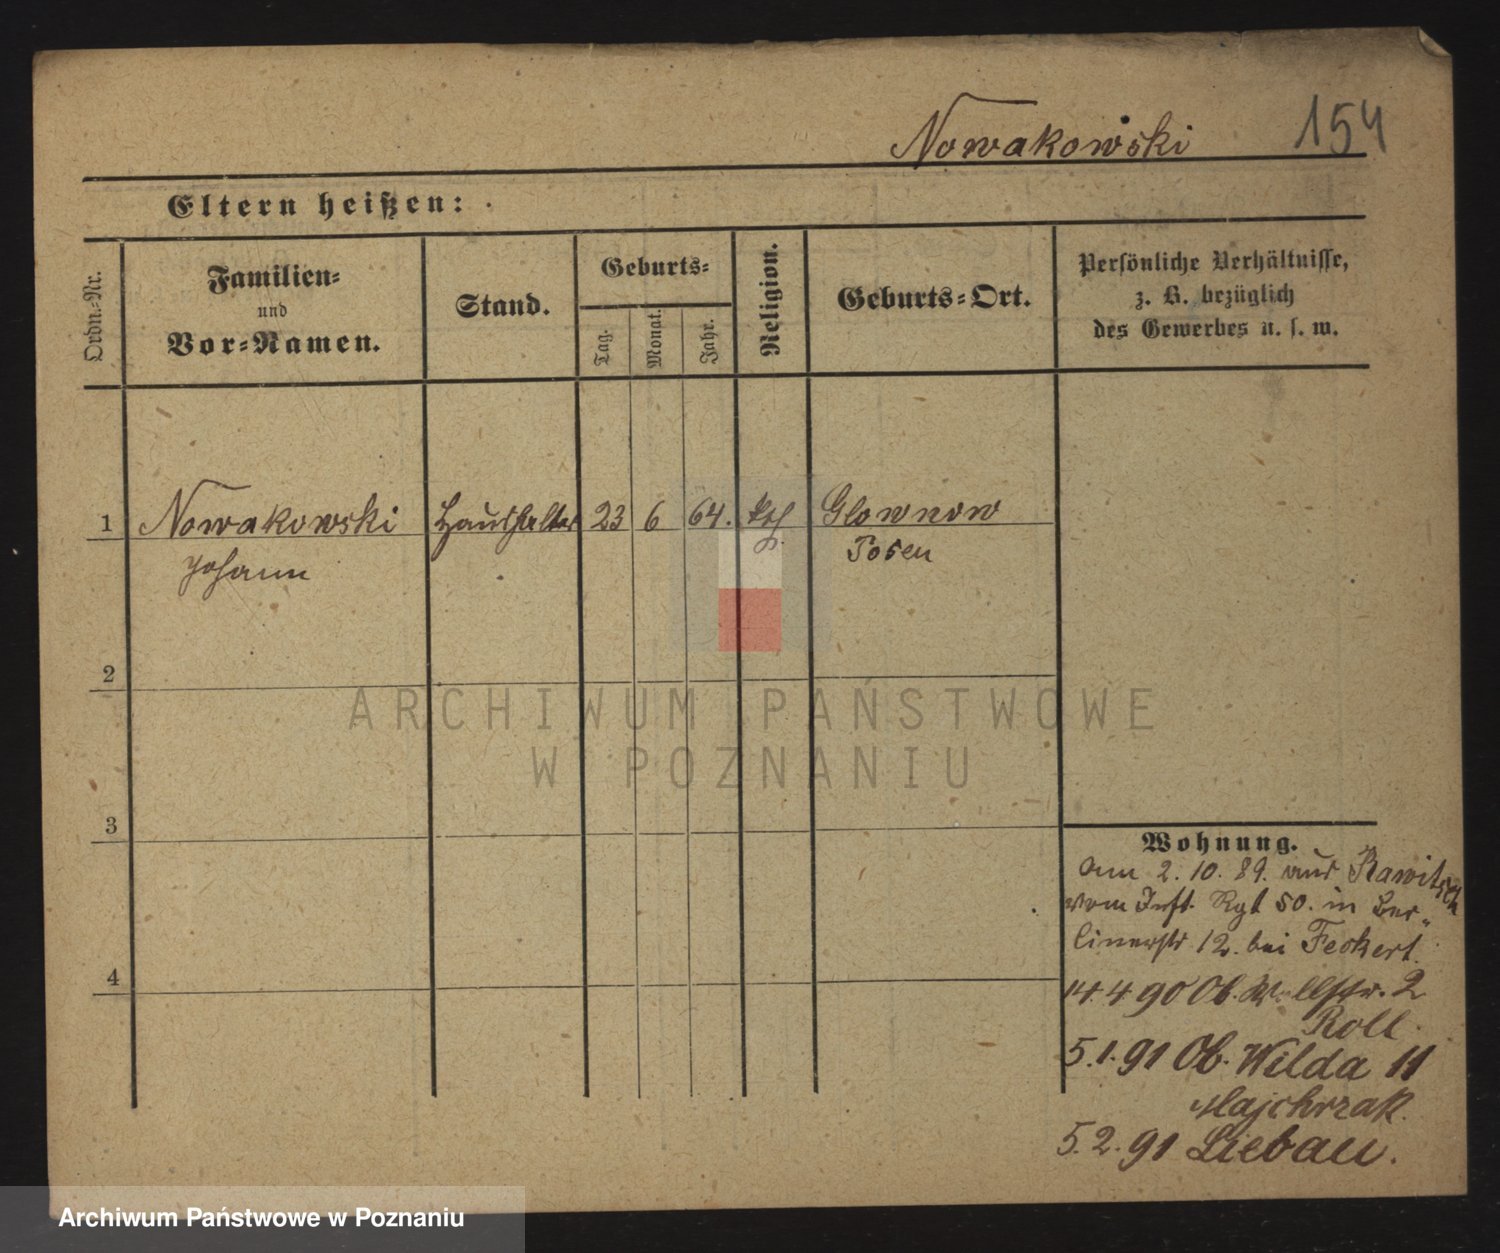 Nowakowski 154
Eltern heißen:
Ordn.-Nr.
Familien-
und
Vor-Namen.
Stand.
Geburts-
Tag.
Monat.
Jahr.
Religion.
Geburts-Ort.
Persönliche Verhältnisse,
z. B. bezüglich
des Gewerbes u. s. w.
1 Nowakowski Haushälter 23 6 64. kth. Glownow
Johann Posen
2
3
4
Wohnung.
Am 2. 10. 89. aus Rawitsch
vom Inft. Rgt 50. in Ber„
linerstr 12. bei Feckert.
14.4 90 Ob. 2
Roll.
5.1.91 Ob. Wilda 11
Majchrzak.
5.2.91 Liebau.
ARCHIWUM PAŃSTWOWE
W POZNANIU
Archiwum Państwowe w Poznaniu